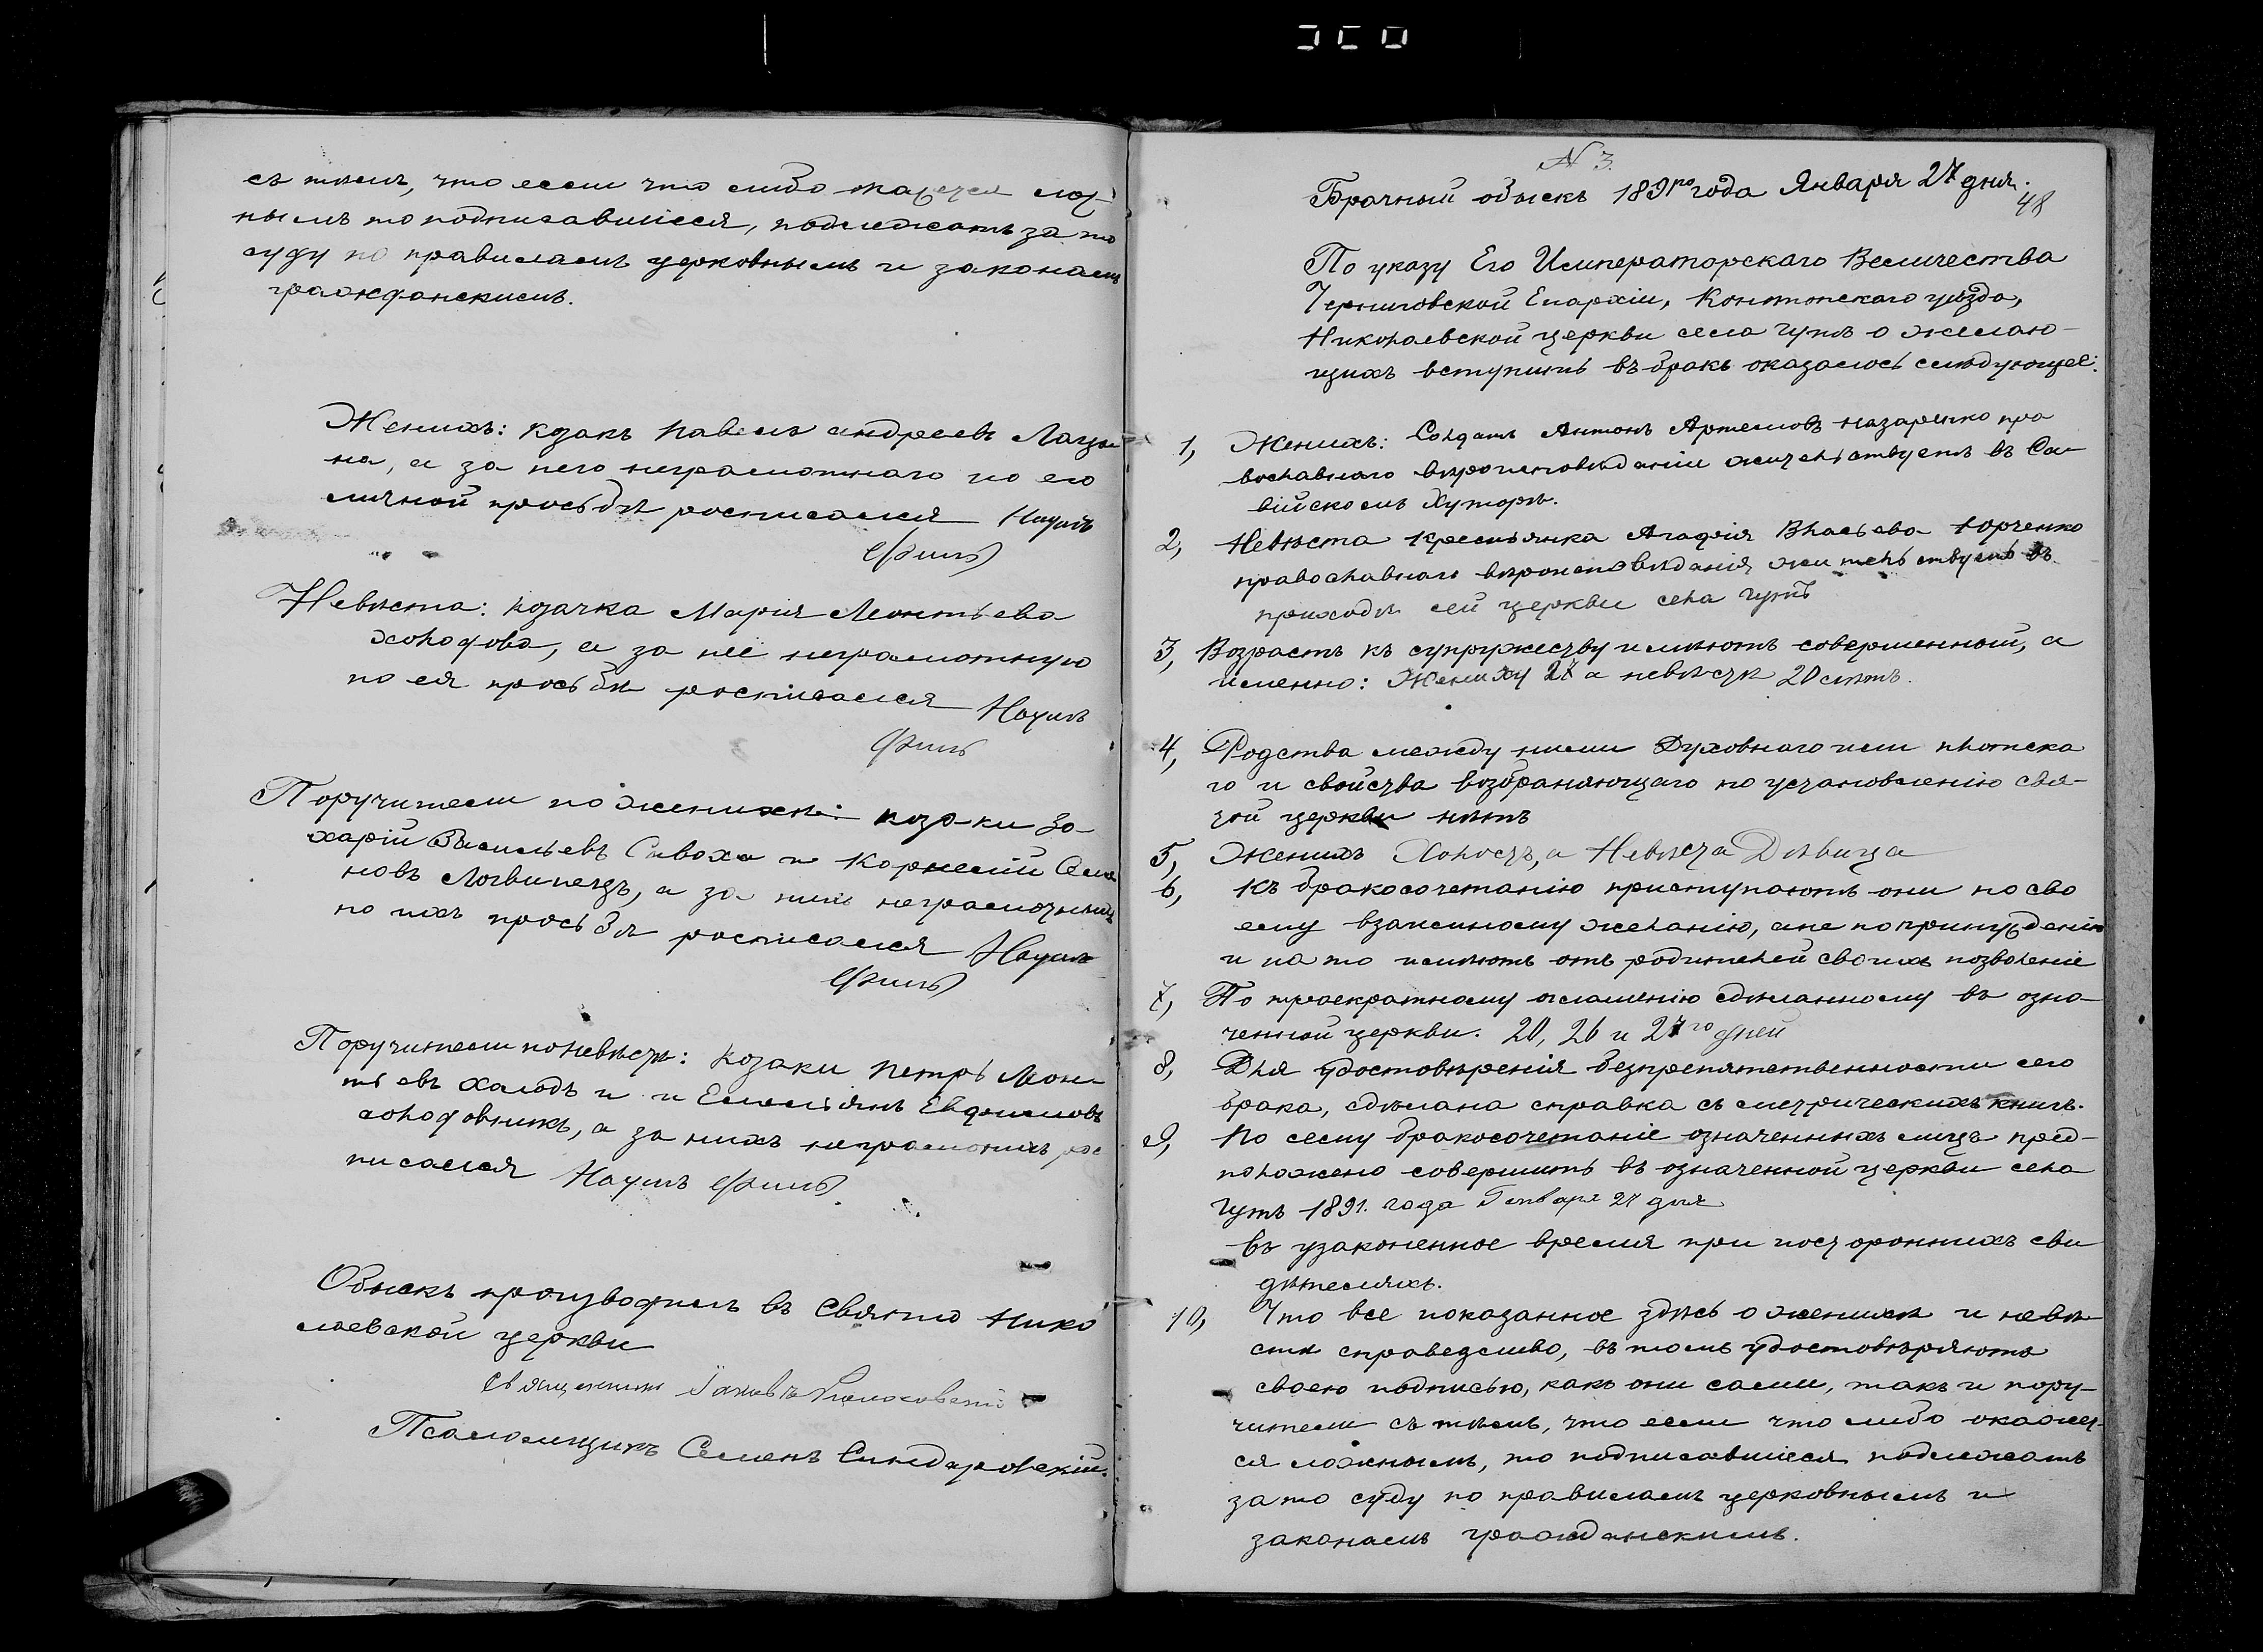 съ тѣмъ, что если что либо окажется лож-
нымъ то подписавшіеся, подлежатъ за то
суду по правиламъ церковнымъ и законамъ
гражданскимъ.
Женихъ: козакъ Павелъ Андреевъ
на, а за него неграмотнаго по его
личной просьбѣ росписался Наумъ
Невѣста: козачка Марія Леонтьева
Холодова, а за неё неграмотную
по ея просьбѣ росписался Наумъ
Поручители по женихѣ: козаки За-
харій Васильевъ Сивоха и Корнелій Семе-
новъ Логвинецъ, а за нихъ неграмотныхъ
по ихъ просьбѣ росписался Наумъ
Поручители по невѣстѣ: козаки Петръ Леон-
тьевъ Халодъ и и Емельянъ Евфимовъ
а за нихъ неграмотнихъ рос
писался Наумъ
Обыскъ производилъ въ Свято Нико
лаевской церкви
Священникъ Іаковъ
Псаломщикъ Семенъ Синдаровскій.
N 3.
Брачный обыскъ 1891го года Января 27 дня.
48
По указу Его Императорскаго Величества
Черниговской Епархіи, Конотопскаго уѣзда,
Николаевской церкви села Гутъ о желаю-
щихъ вступить въ бракъ оказалось слѣдующее:
1, Женихъ: Солдатъ Антонъ Артемовъ Назаренко пра
вославнаго вѣроисповѣданіи жительствуетъ въ Са-
війскомъ Хуторѣ.
2, Невѣста крестьянка Агафія Власьева Юрченко
православнаго вѣроисповѣданія жительствуетъ въ
приходѣ сей церкви села Гутъ
3, Возрастъ къ супружеству имѣютъ совершенный, а
именно: Жениху 27 а невѣстѣ 20 лѣтъ.
4, Родства между ними Духовнаго или плотска
го и свойства возбраняющаго по установленію свя-
той церкви нѣтъ
5, Женихъ Холостъ, а Невѣста Дѣвица
6, Къ бракосочетанію приступаютъ они по сво
ему взаимному желанію, а не по принужденію
и на то имѣютъ отъ родителей своихъ позволеніе
7, По троекратному оглашенію сдѣланному въ озна-
ченной церкви. 20, 26 и 27го дней
8, Для удостовѣренія безпрепятственности сего
брака, сдѣлана справка съ метрическихъ книгъ.
9, По сему бракосочетаніе означенныхъ лицъ пред-
положено совершить въ означенной церкви села
Гутъ 1891. года Генваря 27 дня
въ узаконенное время при постороннихъ сви
дѣтеляхъ.
10, Что все показанное здѣсь о женихѣ и невѣ-
стѣ справедливо, въ томъ удостовѣряютъ
своею подписью, какъ они сами, такъ и пору-
чители съ тѣмъ, что если что либо окажет-
ся ложнымъ, то подписавшіеся подлежатъ
за то суду по правиламъ церковнымъ и
законамъ гражданскимъ.